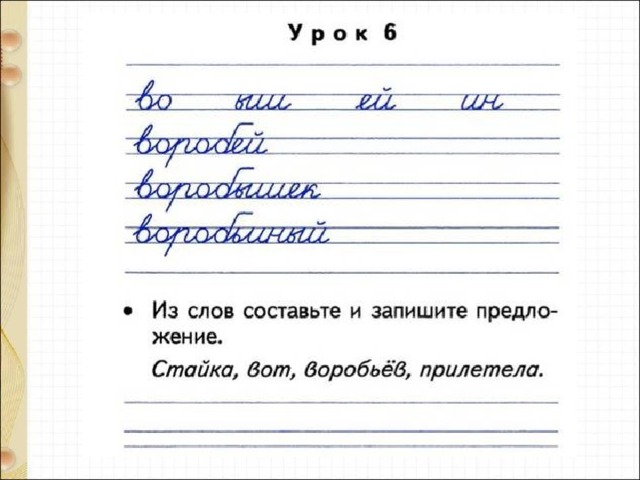 Урок 6
во ыш ей ин
воробей
воробышек
воробьиный
• Из слов составьте и запишите предло-
жение.
Стайка, вот, воробьёв, прилетела.